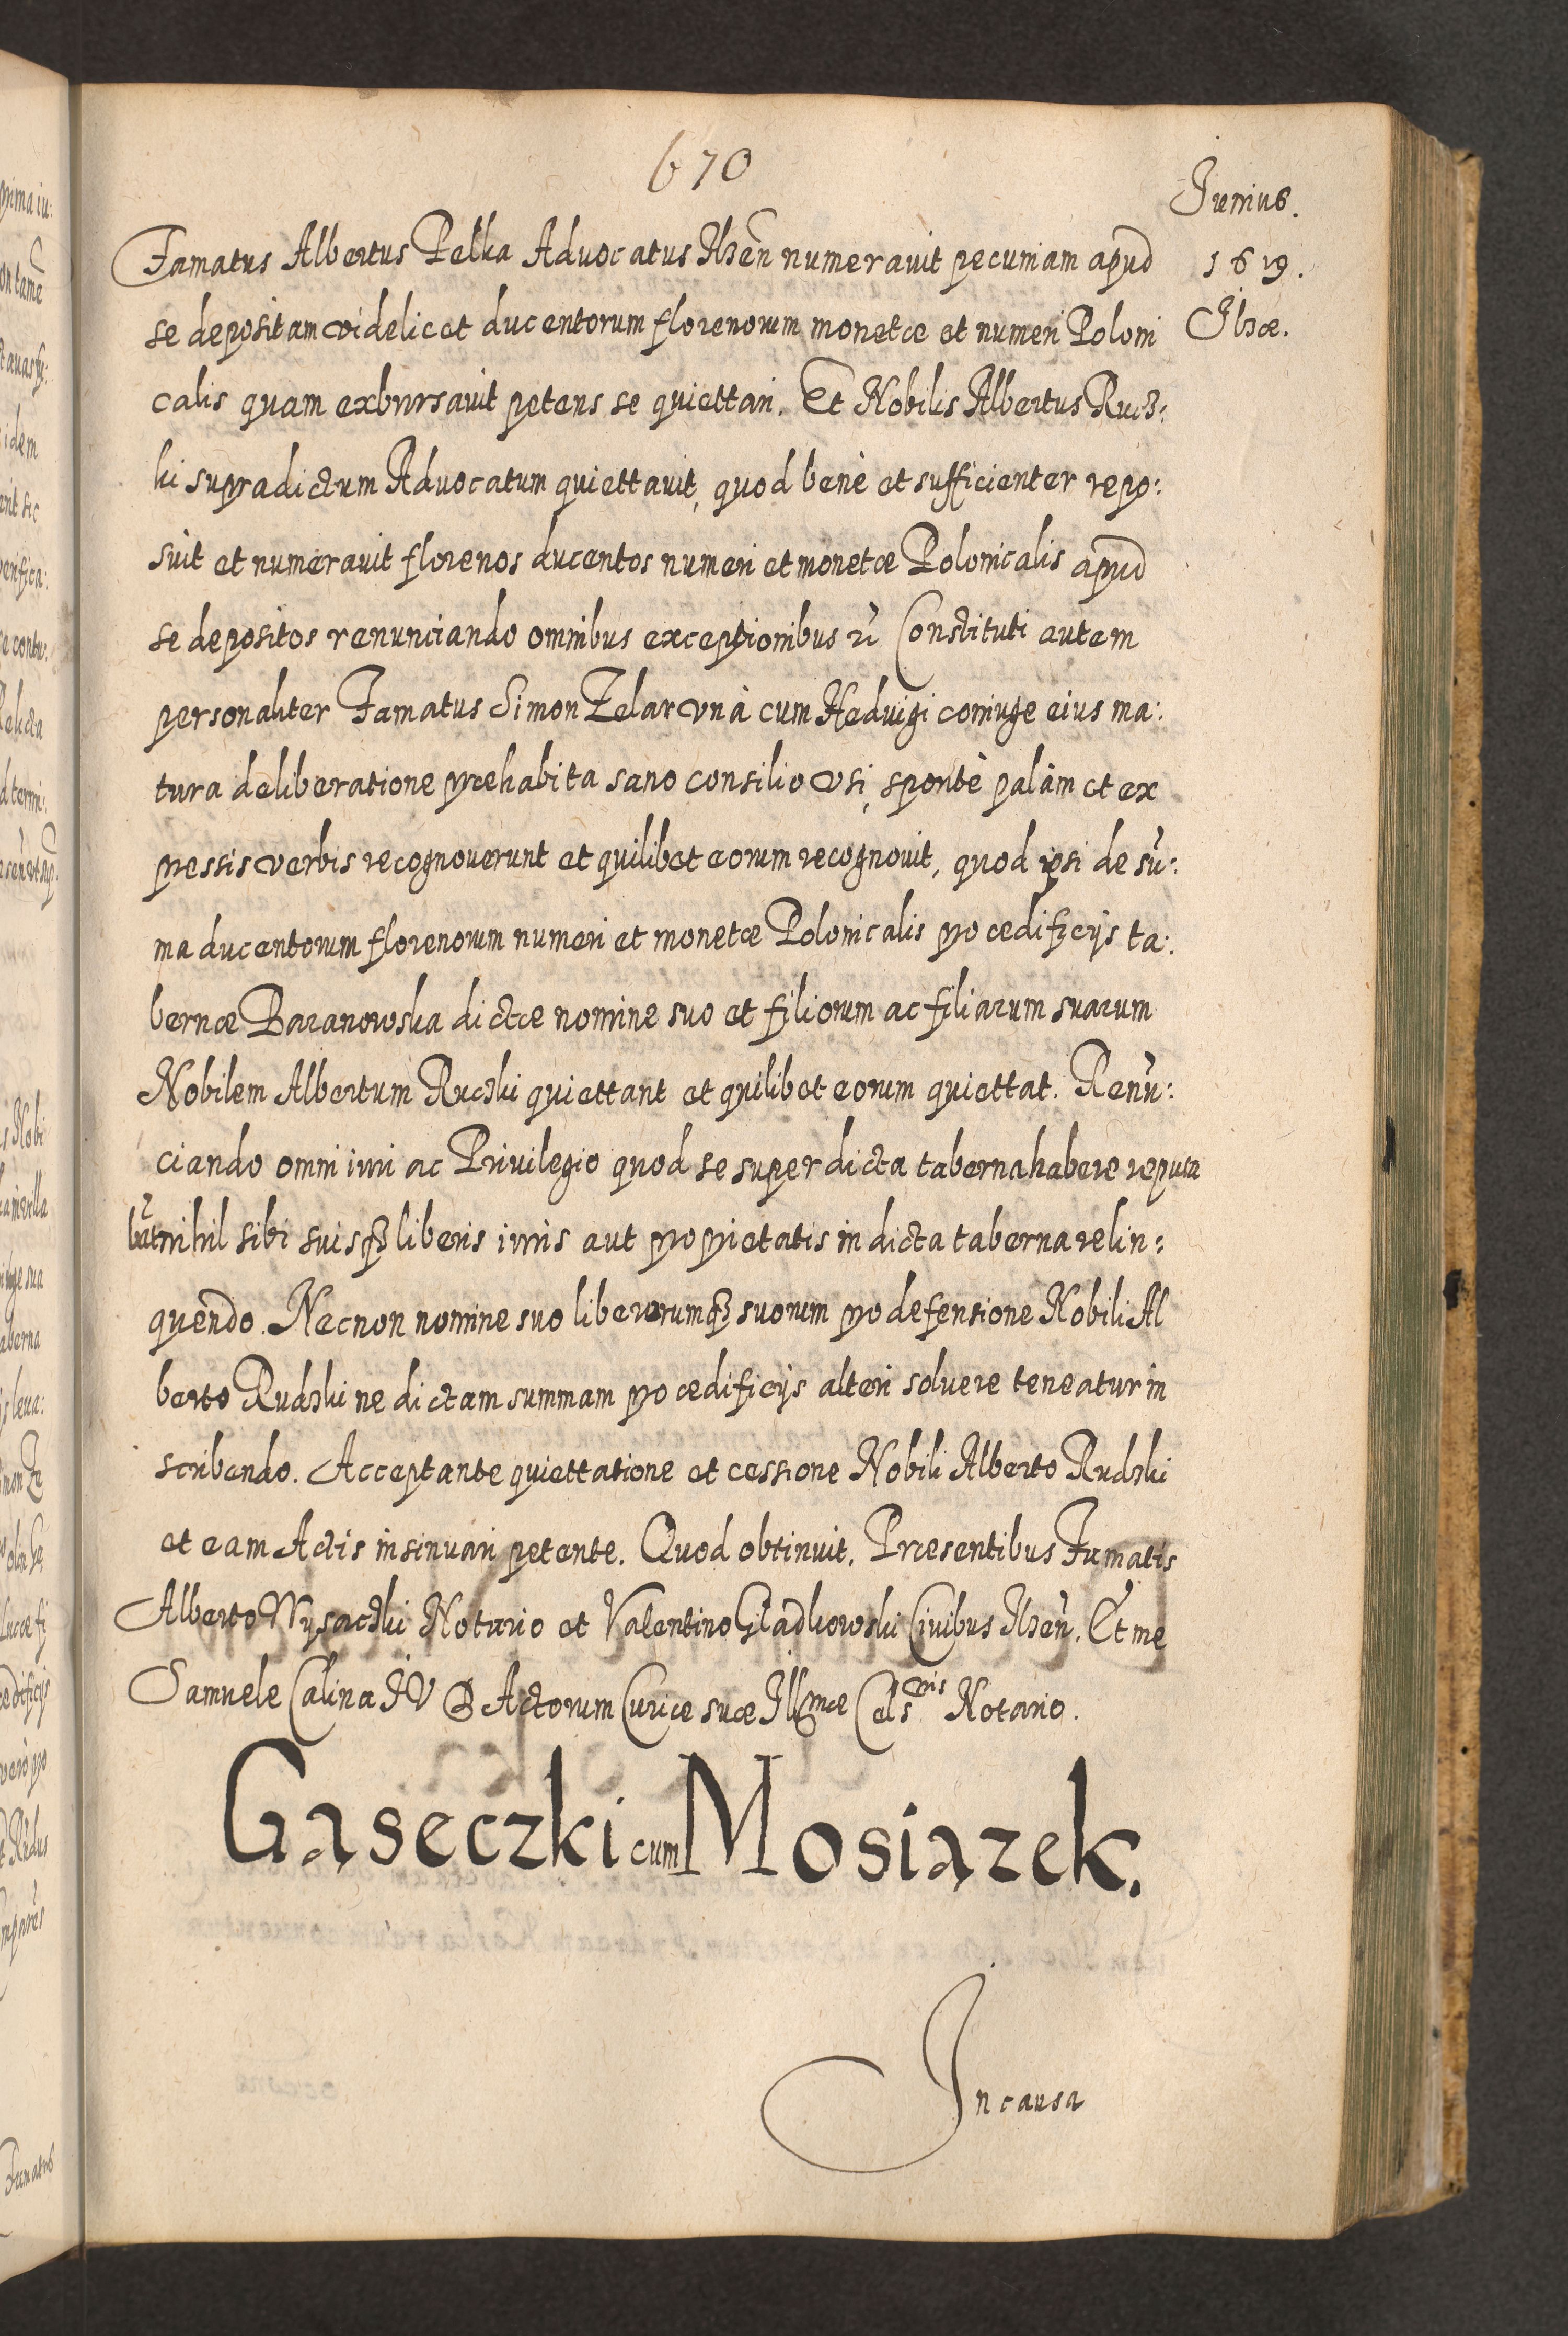 670
Junius.
1619.
Ilzæ.
Famatus Albertus Pelka Advocatus Ilzen̄ numeravit pecuniam apud
se depositam videlicet ducentorum florenorum monetæ et numeri Poloni
calis quam exbursavit petens se quiettari. Et Nobilis Albertus Rucz:
ki supradictum Advocatum quiettavit, quod benè et sufficienter repo:
suit et numeravit florenos ducentos numeri et monetæ Polonicalis apud
se depositos renunciando omnibus exceptionibus Constituti autem
personaliter Famatus Simon Zelar vnà cum Hedvigi coniuge eius ma:
tura deliberatione præhabita sano consilio vsi, spontè palàm et ex
pressis verbis recognoverunt et quilibet eorum recognovit, quod ipsi de sū:
ma ducentorum florenorum numeri et monetæ Polonicalis pro ædificijs ta:
bernæ Baranowska dictæ nomine suo et filiorum ac filiarum suarum
Nobilem Albertum Ruczki quiettant et quilibet eorum quiettat. Renū:
ciando omni iuri ac Privilegio quod se super dicta taberna habere reputa
bāt nihil sibi suisqȝ liberis iuris aut proprietatis in dicta taberna relin:
quendo. Necnon nomine suo liberorumqȝ suorum pro defensione Nobili Al
berto Rudzki ne dictam summam pro ædificijs alteri solvere teneatur in
scribendo. Acceptante quiettatione et cessione Nobili Alberto Rudzki
et eam Actis insinuari petente. Quod obtinuit. Præsentibus Famatis
Alberto Wysaczki Notario et Valentino Gladkowski Civibus Ilzen̄. Et me
Samuele Calina I V D Actorum Curiæ suæ Illmæ Celsnis Notario.
Gaseczki cum Mosiazek.
In causa